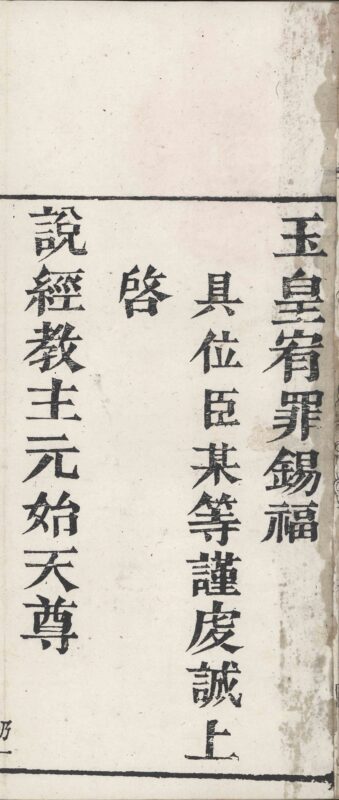 玉皇宥罪錫福
具位臣某等謹虔誠上
啓
說經教主元始天尊
乃一